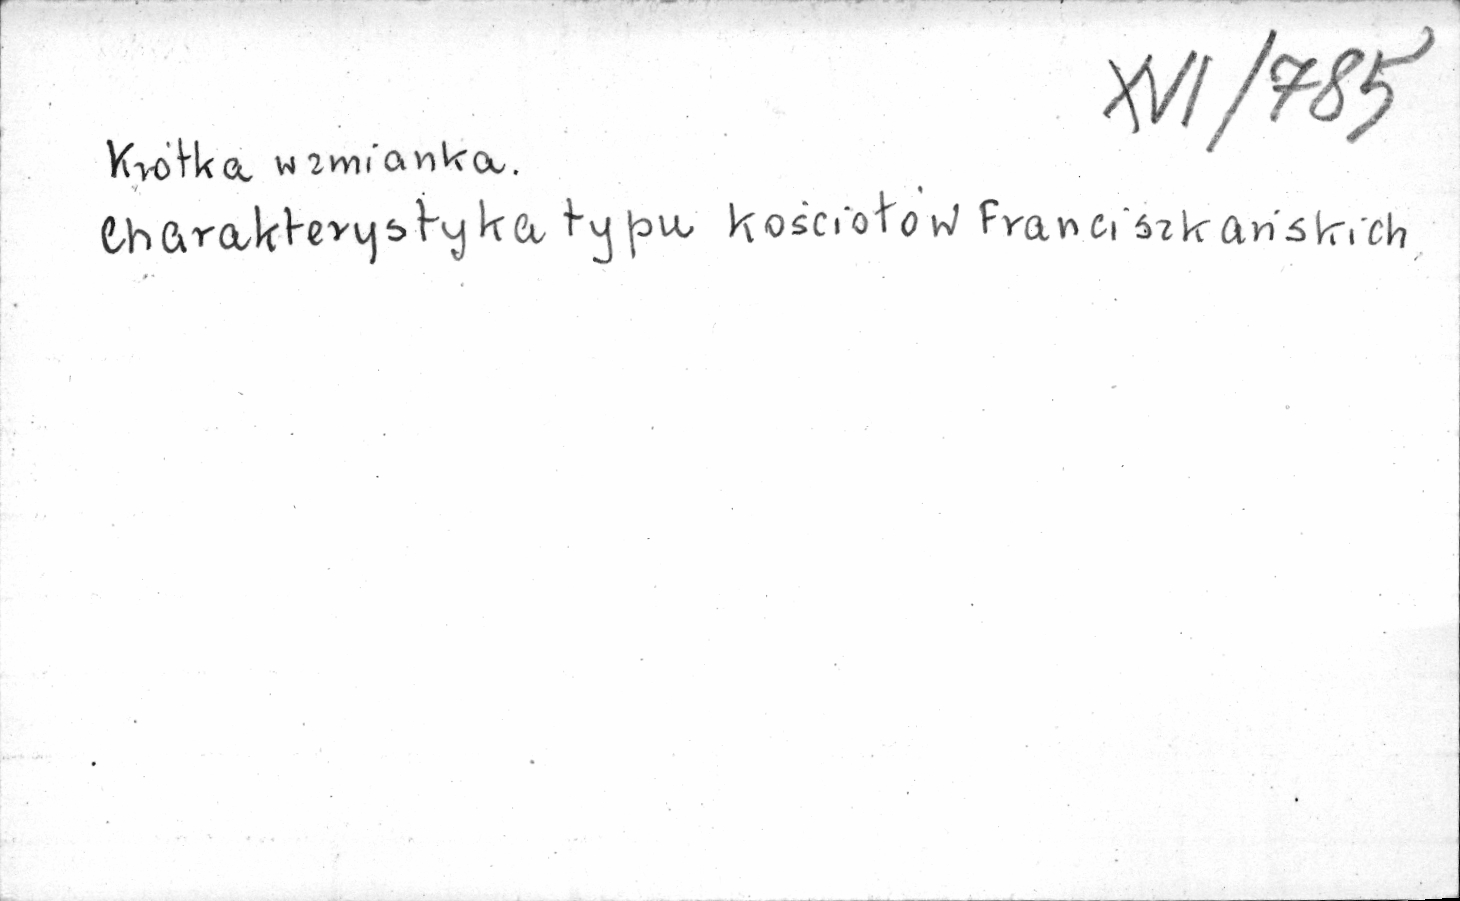 XVI/785
Krótka wzmianka.
Charakterystyka typu kościołów Franciszkańskich